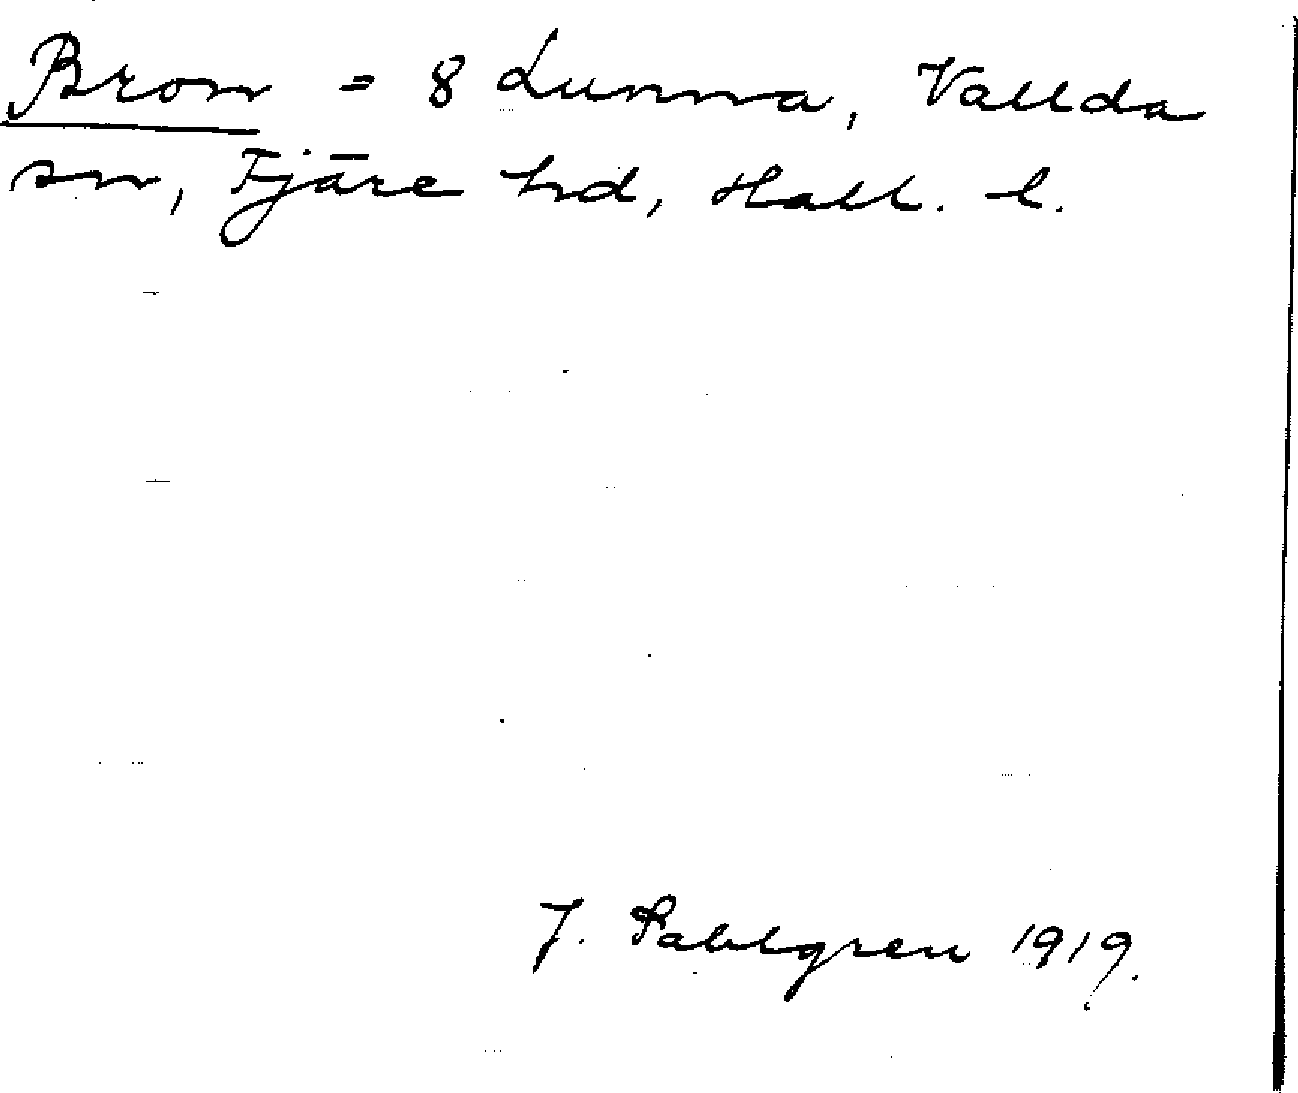 Bron = 8 Lunna, Vallda
sn, Fjäre hd, Hall. l.
J. Sahlgren 1919.